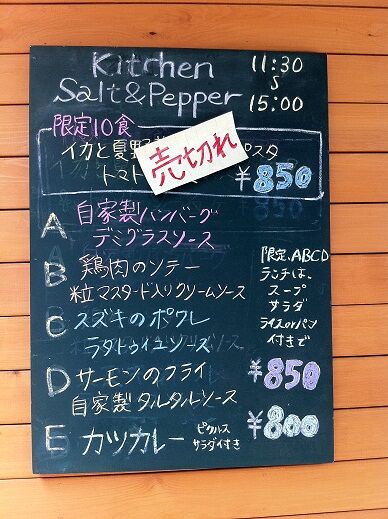 Kitchen
Salt & Pepper
11:30
〜
15:00
限定10食
イカと夏野 パスタ
トマト
売切れ
¥850
A 自家製ハンバーグ
デミグラスソース
B 鶏肉のソテー
粒マスタード入りクリームソース
C スズキのポワレ
ラタトゥイユソース
D サーモンのフライ
自家製タルタルソース
E カツカレー
ピクルス
サラダ付き
限定、ABCD
ランチは、
スープ
サラダ
ライスorパン
付きで
¥850
¥800